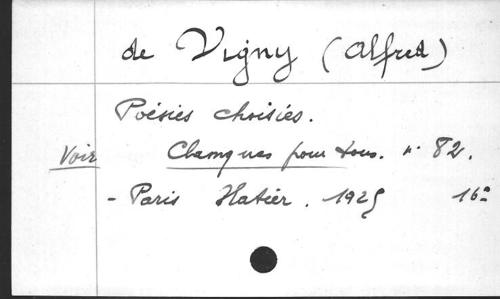 de Vigny (Alfred)
Poésies choisies.
Voir Classiques pour tous. n° 82.
- Paris Hatier. 1925 16°